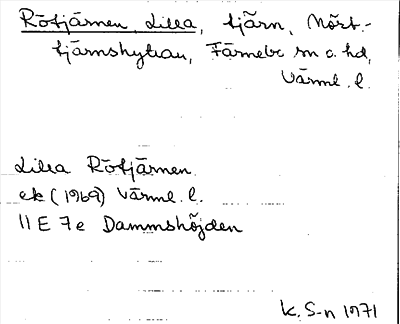 Rötjärnen, Lilla, tjärn, Mört-
tjärnshyttan, Färnebo sn o. hd,
Värml. l.
Lilla Rötjärnen
ek (1969) Värml. l.
11 E 7 e Dammshöjden
K. S-n 1971